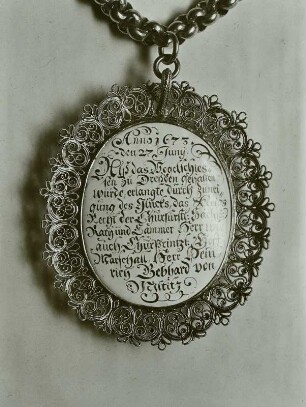 Anno 1673
den 27 Juny.
Alß das Vogelschies-
sen zu Dreßden gehalten
wurde erlangte durch zunei-
gung des Glücks das
Recht der Churfürstl. Sächß.
Rath und Cammer Herr
auch ChurPrintzl.
Marschall Herr Hein
rich Gebhard von
Miltitz